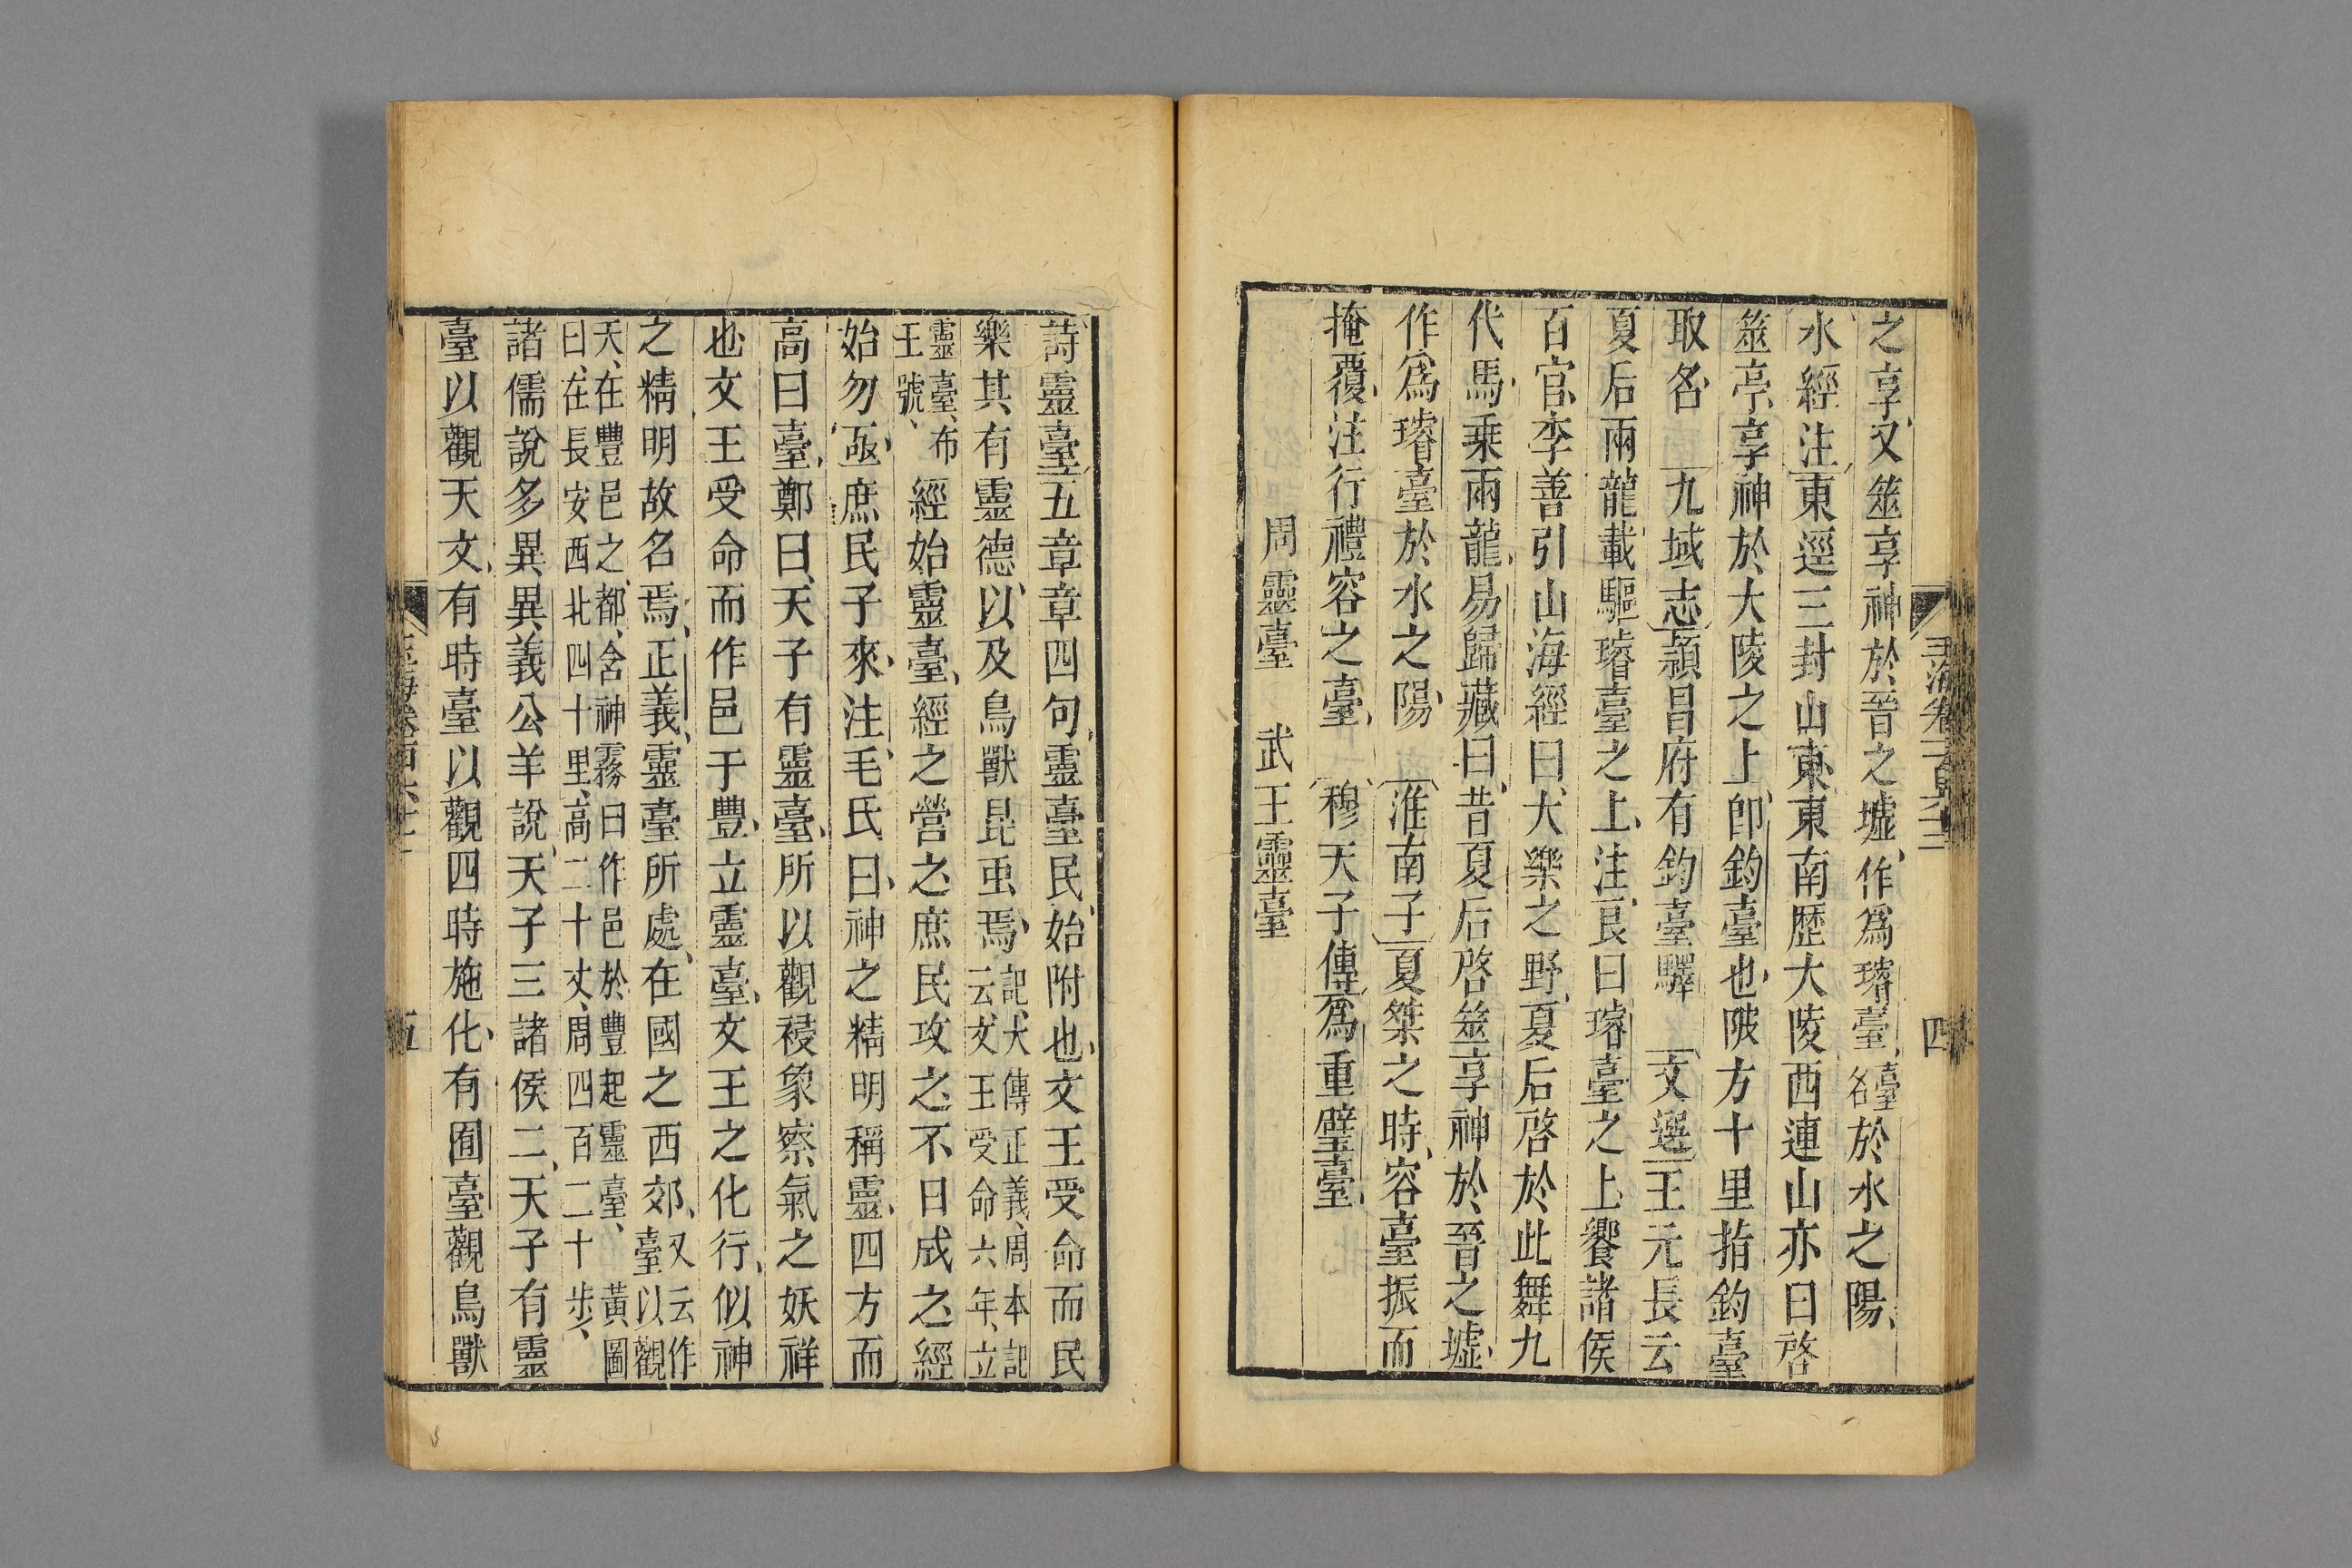 玉海卷一百六十二
四
之享又筮享神於晉之墟作爲璿臺臺名於水之陽
水經注東逕三封山東東南歷大陵西連山亦曰啓
筮亭享神於大陵之上卽釣臺也陂方十里指釣臺
取名 九域志潁昌府有鈞臺驛 文選王元長云
夏后兩龍載驅璿臺之上注良曰璿臺之上饗諸侯
百官李善引山海經曰大樂之野夏后啓於此舞九
代馬乗兩龍易歸藏曰昔夏后啓筮享神於晉之墟
作爲璿臺於水之陽 淮南子夏桀之時容臺振而
掩覆注行禮容之臺 穆天子傳爲重璧臺
周靈臺 武王靈臺
詩靈臺五章章四句靈臺民始附也文王受命而民
樂其有靈德以及鳥獸昆䖝焉記大傳正義周本記云文王受命六年立
靈臺布王號 經始靈臺經之營之庶民攻之不日成之經
始勿亟庶民子來注毛氏曰神之精明稱靈四方而
高曰臺鄭曰天子有靈臺所以觀祲象察氣之妖祥
也文王受命而作邑于豐立靈臺文王之化行似神
之精明故名焉正義靈臺所處在國之西郊又云作臺以觀
天在豐邑之都含神霧曰作邑於豐起靈臺 黃圖曰在長安西北四十里高二十丈周四百二十步
諸儒說多異異義公羊說天子三諸侯二天子有靈
臺以觀天文有時臺以觀四時施化有囿臺觀鳥獸
五